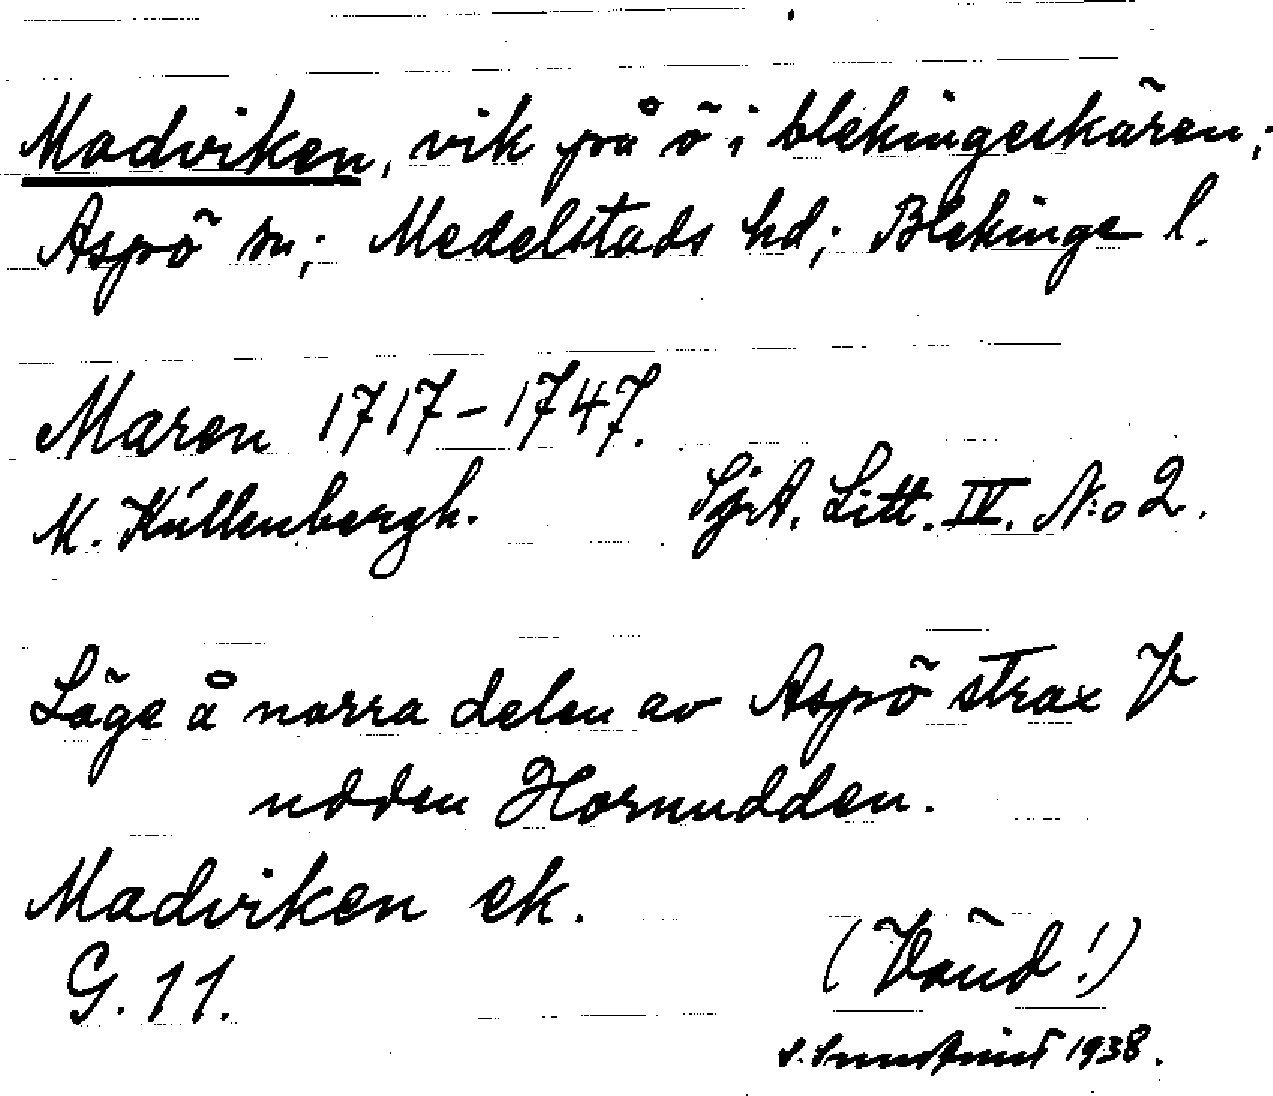 Madviken, vik på ö i blekingeskären;
Aspö sn; Medelstads hd; Blekinge l.
Maren 1717-1747.
M. Kúllenbergh. SjöA. Litt. IV. N:o 2.
Läge å norra delen av Aspö strax V
udden Hornudden.
Madviken ek.
G. 11.
(Vänd!)
1938.